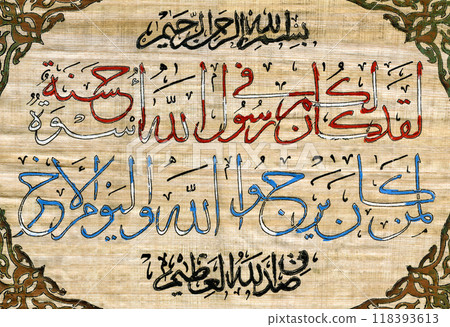 بسم الله الرحمن الرحيم
لقد كان لكم في رسول الله أسوة حسنة
لمن كان يرجوا الله واليوم الآخر
صدق الله العظيم
118393613